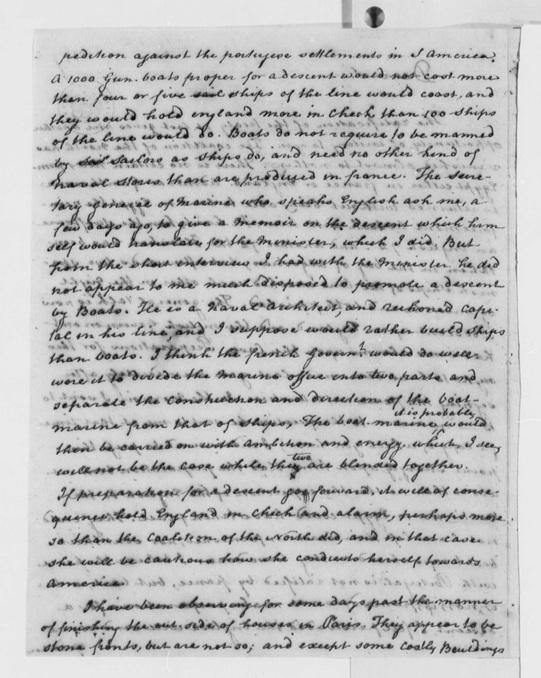 pedition against the portugese settlements in S America.
A 1000 Gun-boats proper for a descent would not cost more
than four or five sail ships of the line would coast, and
they would hold england more in check than 100 ships
of the line would do. Boats do not require to be manned
by sail sailors as ships do, and need no other kind of
Naval stores than are produced in france. The Secre-
tary general of Marine who speaks English ask me, a
few days ago, to give a memoir on the descent which him-
self would translate for the Minister, which I did. But
from the short interview I had with the Minister he did
not appear to me much disposed to promote a descent
by Boats. He is a Naval Architect, and reckoned capi-
tal in his line, and I suppose would rather build ships
than boats. I think the french Governt. would do well
were it to divide the Marine office into two parts and
seperate the Construction and direction of the boat-
marine from that of ships. The boat-marine would
it is probably,
then be carried on with ambition and energy, which, I see,
will not be the case while they two are blended together.
If preparation for a descent goes forward, it will of conse-
quence hold England in Check and alarm, perhaps more
so than the Coalition of the North did, and in that case
she will be cautious how she conducts herself towards
America.
I have been observing for some days past the manner
of finishing the out side of houses in Paris. They appear to be
stone fronts, but are not so; and except some costly Buildings